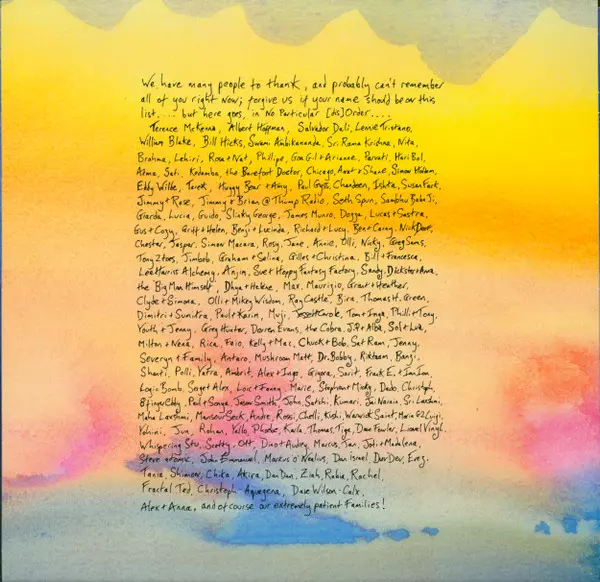 We have many people to thank, and probably can't remember
all of you right now; forgive us if your name should be on this
list.... but here goes, in No Particular [dis]Order....
Terence McKenna, Albert Hoffman, Salvador Dali, Lennie Tristano,
William Blake, Bill Hicks, Swami Ambikananda, Sri Rama Krishna, Nita,
Brahma, Lehiri, Rosa + Nat, Phillipe, Goa Gil + Arianne, Parvati, Hari Bol,
Alma, Sati, Kedamba, the Barefoot Doctor, Chicago, Anat + Shane, Simon Holam,
Eddy Willb, Tarek, Huggy Bear + Amy, Paul Gyps, Chandeen, Ishta, Susan Fark,
Jimmy + Rose, Jimmy + Brian @ Thump Radio, Seth Spun, Sambhu BabaJi,
Giarda, Lucia, Guido, Slinky George, James Munro, Dogga, Lucas + Sastra,
Gus + Cozy, Griff + Helen, Benji + Lucinda, Richard + Lucy, Ben + Carny, Nick Doof,
Chester, Jasper, Simon Macara, Rosy, Jane, Annie, Olli, Nicky, Greg Sams,
Tony 2toes, Jimbob, Graham + Selina, Gilles + Christina, Bill + Francesca,
Lee Harris Alchemy, Anjin, Sue + Hoppy Fantasy Factory, Sandy, Dickster + Ana,
the Big Man Himself, Dhya + Helene, Max, Maurizio, Grant + Heather,
Clyde + Simona, Olli + Mikey Wisdom, Ray Castle, Bira, Thomas H. Green,
Dimitri + Sumitra, Paul + Karin, Muji, Tom + Inga, Phill + Tony,
Youth + Jenny, Greg Hunter, Darren Evans, the Cobra, J.P. + Alba, Sol + Luk,
Milton + Nena, Rica, Faio, Kelly + Mac, Chuck + Bob, Sat Ram, Jenny,
Severyn + Family, Antaro, Mushroom Matt, Dr. Bobby, Riktaam, Banzi,
Shanti, Polli, Yafra, Ambrit, Alex + Inga, Giyora, Sarit, Frank E. + Ian Ion,
Logic Bomb, Serge + Alex, Loic + Fanny, Marie, Stephan + Micky, Dado, Christoph,
8 finger Eddy, Paul + Sonya, Jason Smith, John, Satchi, Kumari, Jai Narain, Sri Lakshmi,
Maha Laxshmi, Mansour Seck, Andre, Rossi, Chelli, Kishi, Warwick Saint, Maria G2, Luigi,
Yohini, Jun, Rohan, Yallo, Phoebe, Karla, Thomas, Tiga, Dave Fowler, Lionel Vinyl,
Whispering Stu, Scotty, Ott, Dino + Audrey, Marcus, Tan, Jodi + Madalena,
Steve atomic, John Emmanuel, Marcus O'Nealius, Dan Israel, Dav Dev, Ereg,
Tania, Shimon, Chika, Akira, Dan Dan, Ziah, Rabia, Rachel,
Fractal Ted, Christoph Aquagena, Dave Wilson-Calx,
Alex + Anna, and of course our extremely patient Families!